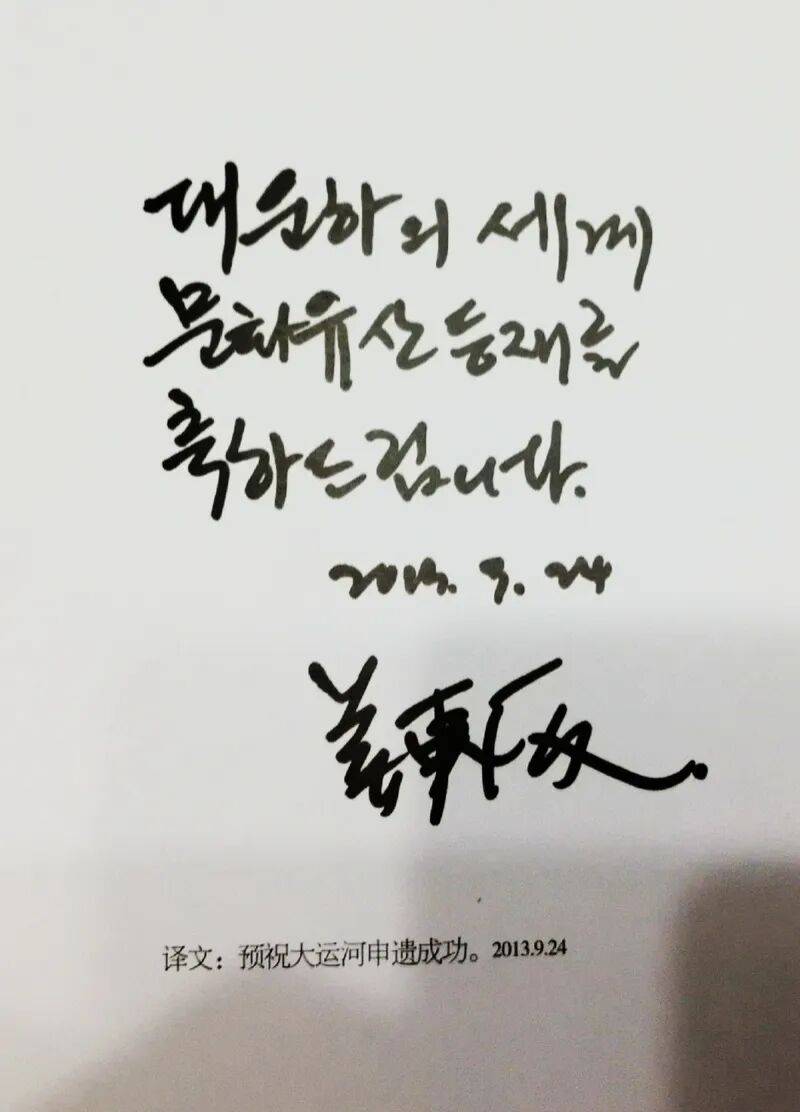 대운하의 세계
문화유산 등재를
축하드립니다.
2013. 9. 24
姜東
译文：预祝大运河申遗成功。2013.9.24